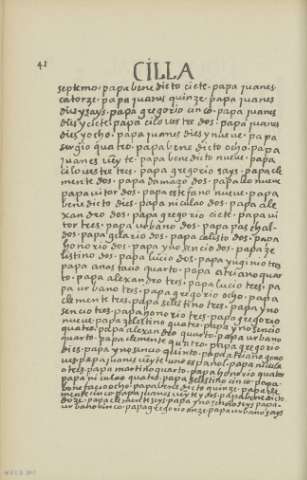 41
CILLA
septemo · papa benedicto ciete · papa juanes
catorze · papa juanes quinze · papa juanes
dies y says · papa gregorio cinco · papa juanes
dies y ciete · papa cilvestre dos · papa juanes
dies y ocho · papa juanes dies y nueve · papa
sergio quatro · papa benedicto ocho · papa
juanes veyte · papa benedicto nueve · papa
cilvestre tres · papa gregorio says · papa cle
mente dos · papa damazo dos · papa leo nueve
papa vitor dos · papa estefano nueve · papa
benedicto dies · papa niculao dos · papa ale
xandro dos · papa gregorio ciete · papa vi
tor tres · papa urbano dos · papa paschal
dos · papa gelacio dos · papa calisto dos · papa
honorio dos · papa ynosencio dos · papa ze
lestino dos · papa lucio dos · papa yuginio tres
papa anastacio quarto · papa adriano quar
to · papa alexandro tres · papa lucio tres · pa
pa urbano tres · papa gregorio ocho · papa
clemente tres · papa selestino tres · papa yno
sencio tres · papa honorio tres · papa gregorio
nueve · papa selestino quatro · papa ynosencio
quatro · papa alexandro quarto · papa urbano
quarto · papa clemente quatro · papa gregorio
dies · papa ynosencio quinto · papa
papa juanes veyte · papa nicula
o tres · papa martino quarto · papa honorio quatro
papa niculao quatro · papa selestino cinco · papa
bonifacio ocho · papa benedicto quinze · papa cle
mente cinco · papa juanes veyte y dos · papa benedicto
doze · papa clemente says · papa ynosencio seys · papa
urbano cinco · papa gregorio onze · papa urbano says